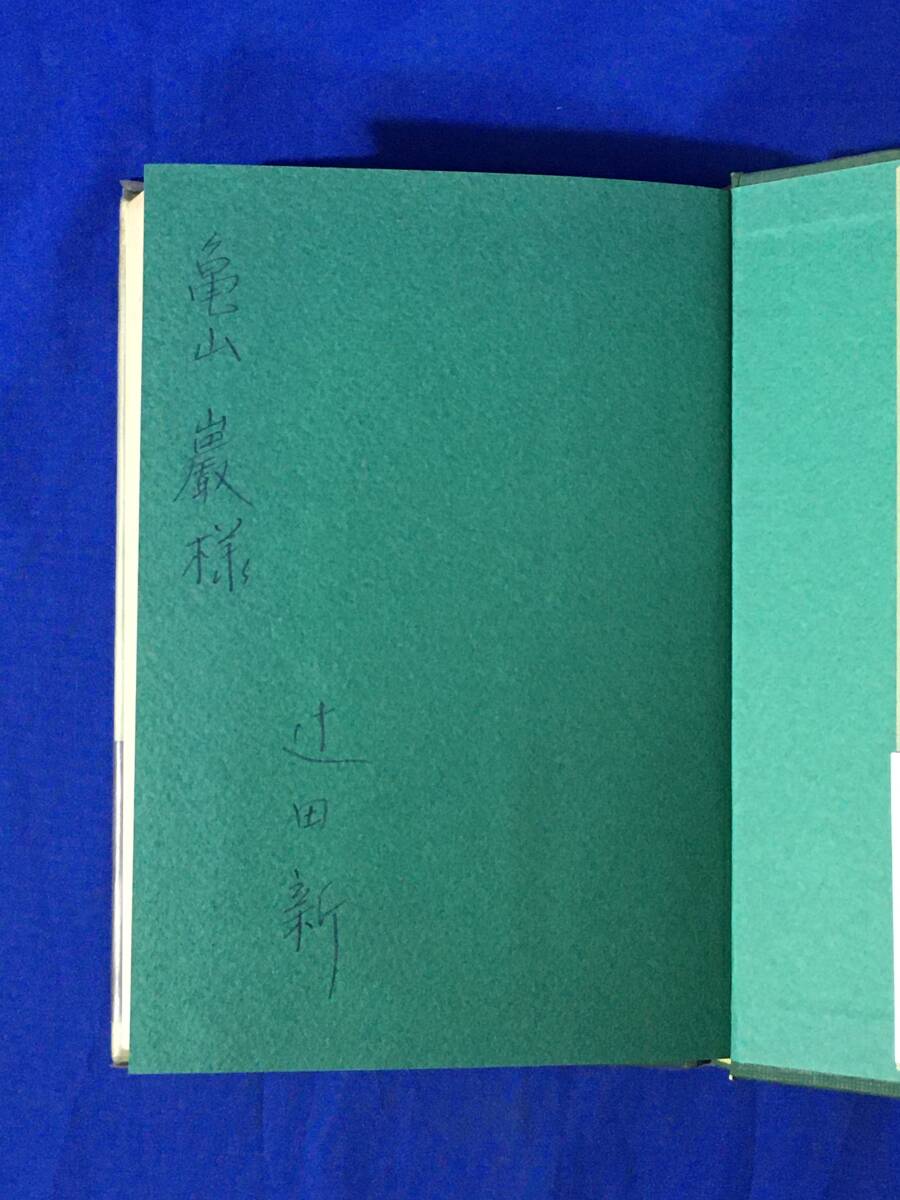 亀山 巌様
辻田新